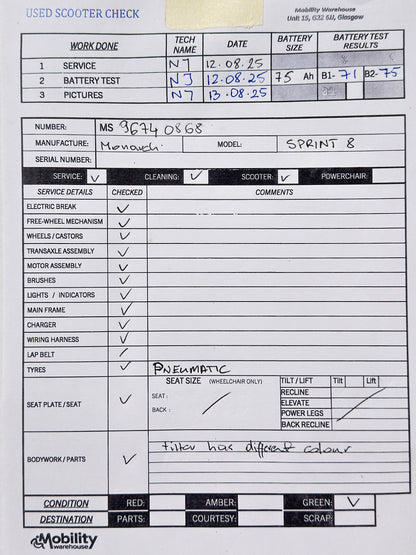 USED SCOOTER CHECK
Mobility Warehouse
Unit 15, G32 6JJ, Glasgow
WORK DONE TECH NAME DATE BATTERY SIZE BATTERY TEST RESULTS
1 SERVICE NJ 12.08.25
2 BATTERY TEST NJ 12.08.25 75 Ah B1- 71 B2- 75
3 PICTURES NJ 13.08.25
NUMBER: MS 96740868
MANUFACTURE: Monarch MODEL: SPRINT 8
SERIAL NUMBER:
SERVICE: ✓ CLEANING: ✓ SCOOTER: ✓ POWERCHAIR:
SERVICE DETAILS CHECKED COMMENTS
ELECTRIC BREAK ✓
FREE-WHEEL MECHANISM ✓
WHEELS / CASTORS ✓
TRANSAXLE ASSEMBLY ✓
MOTOR ASSEMBLY ✓
BRUSHES ✓
LIGHTS / INDICATORS ✓
MAIN FRAME ✓
CHARGER ✓
WIRING HARNESS ✓
LAP BELT ✓
TYRES ✓ PNEUMATIC
SEAT PLATE / SEAT ✓ SEAT SIZE (WHEELCHAIR ONLY) TILT / LIFT Tilt Lift
SEAT: RECLINE
BACK: ELEVATE
POWER LEGS
BACK RECLINE
BODYWORK / PARTS ✓ tiller has different colour
CONDITION RED: AMBER: GREEN: ✓
DESTINATION PARTS: COURTESY: SCRAP:
Mobility
warehouse